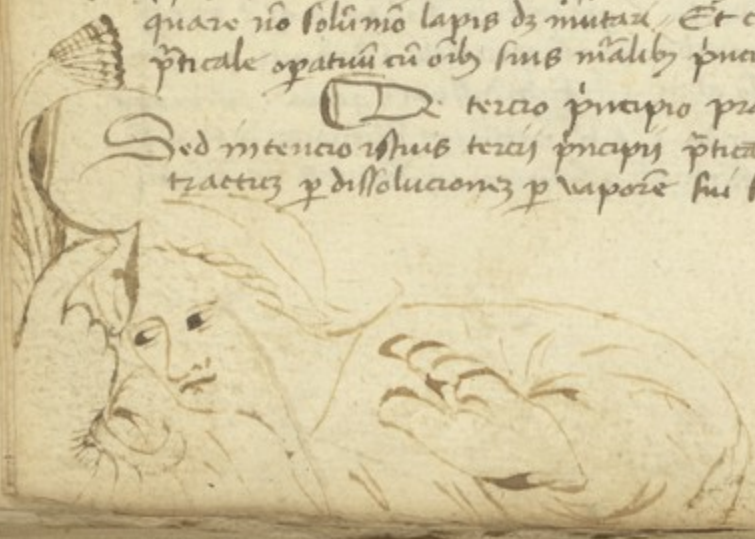 quare nō solūmō lapis dȝ mutari Et
p̄ticale opatiuū cū oībȝ suis mālibȝ
De tercio p̍ncipio
Sed intencio istius tercij p̍ncipij
tractȝ p̱ dissolucionēȝ p̱ vaporē sui